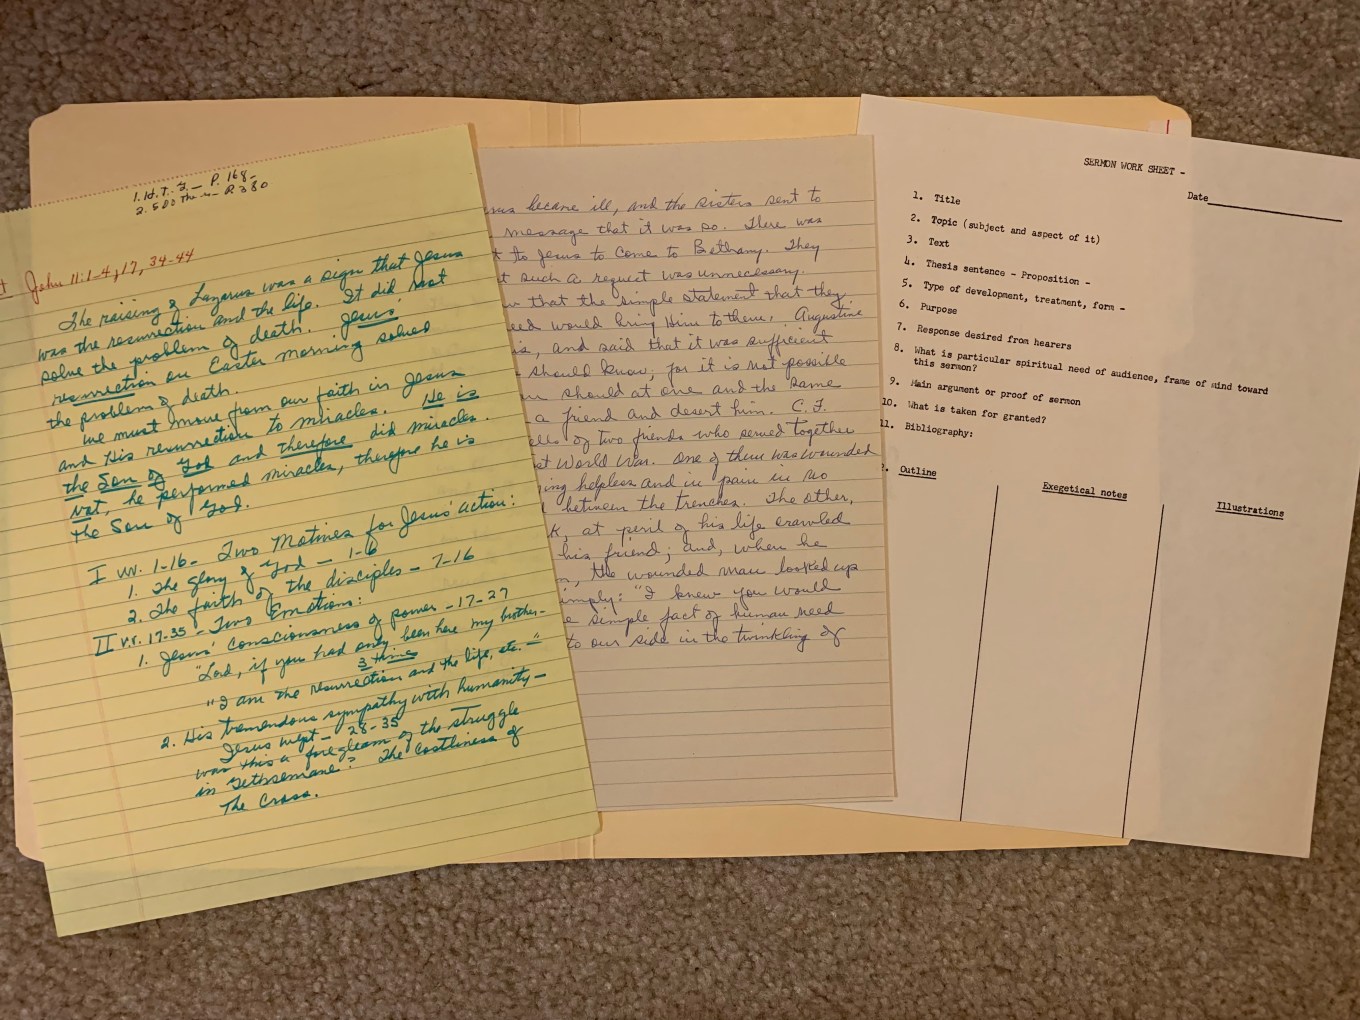 1. H.T.
P. 168-
2. 500
P. 380
John 11:1-4, 17, 34-44
The raising of Lazarus was a sign that Jesus
was the resurrection and the life. It did not
solve the problem of death. Jesus'
resurrection on Easter morning solved
the problem of death.
We must move from our faith in Jesus
and His resurrection to miracles. He is
the Son of God and therefore did miracles.
Not, he performed miracles, therefore he is
the Son of God.
I vv. 1-16- Two Motives for Jesus' action:
1. The glory of God - 1-6
2. The faith of the disciples - 7-16
II vv. 17-35 - Two Emotions:
1. Jesus' consciousness of power - 17-27
"Lord, if you had only been here my brother-
3 things
"I am the resurrection and the life, etc. -"
2. His tremendous sympathy with humanity-
Jesus wept - 28-35
was this a foregleam of the struggle
in Gethsemane? The costliness of
The Cross.
became ill, and the sisters sent to
message that it was so. There was
to Jesus to come to Bethany. They
such a request was unnecessary.
that the simple statement that they
would bring Him to them. Augustine
and said that it was sufficient
should know; for it is not possible
should at one and the same
a friend and desert him. C. F.
of two friends who served together
World War. One of them was wounded
helpless and in pain in no
between the trenches. The other,
at peril of his life crawled
his friend; and, when he
the wounded man looked up
"I knew you would
simple fact of human need
to our side in the twinkling of
SERMON WORK SHEET -
Date
1. Title
2. Topic (subject and aspect of it)
3. Text
4. Thesis sentence - Proposition -
5. Type of development, treatment, form -
6. Purpose
7. Response desired from hearers
8. What is particular spiritual need of audience, frame of mind toward
this sermon?
9. Main argument or proof of sermon
10. What is taken for granted?
11. Bibliography:
Outline
Exegetical notes
Illustrations